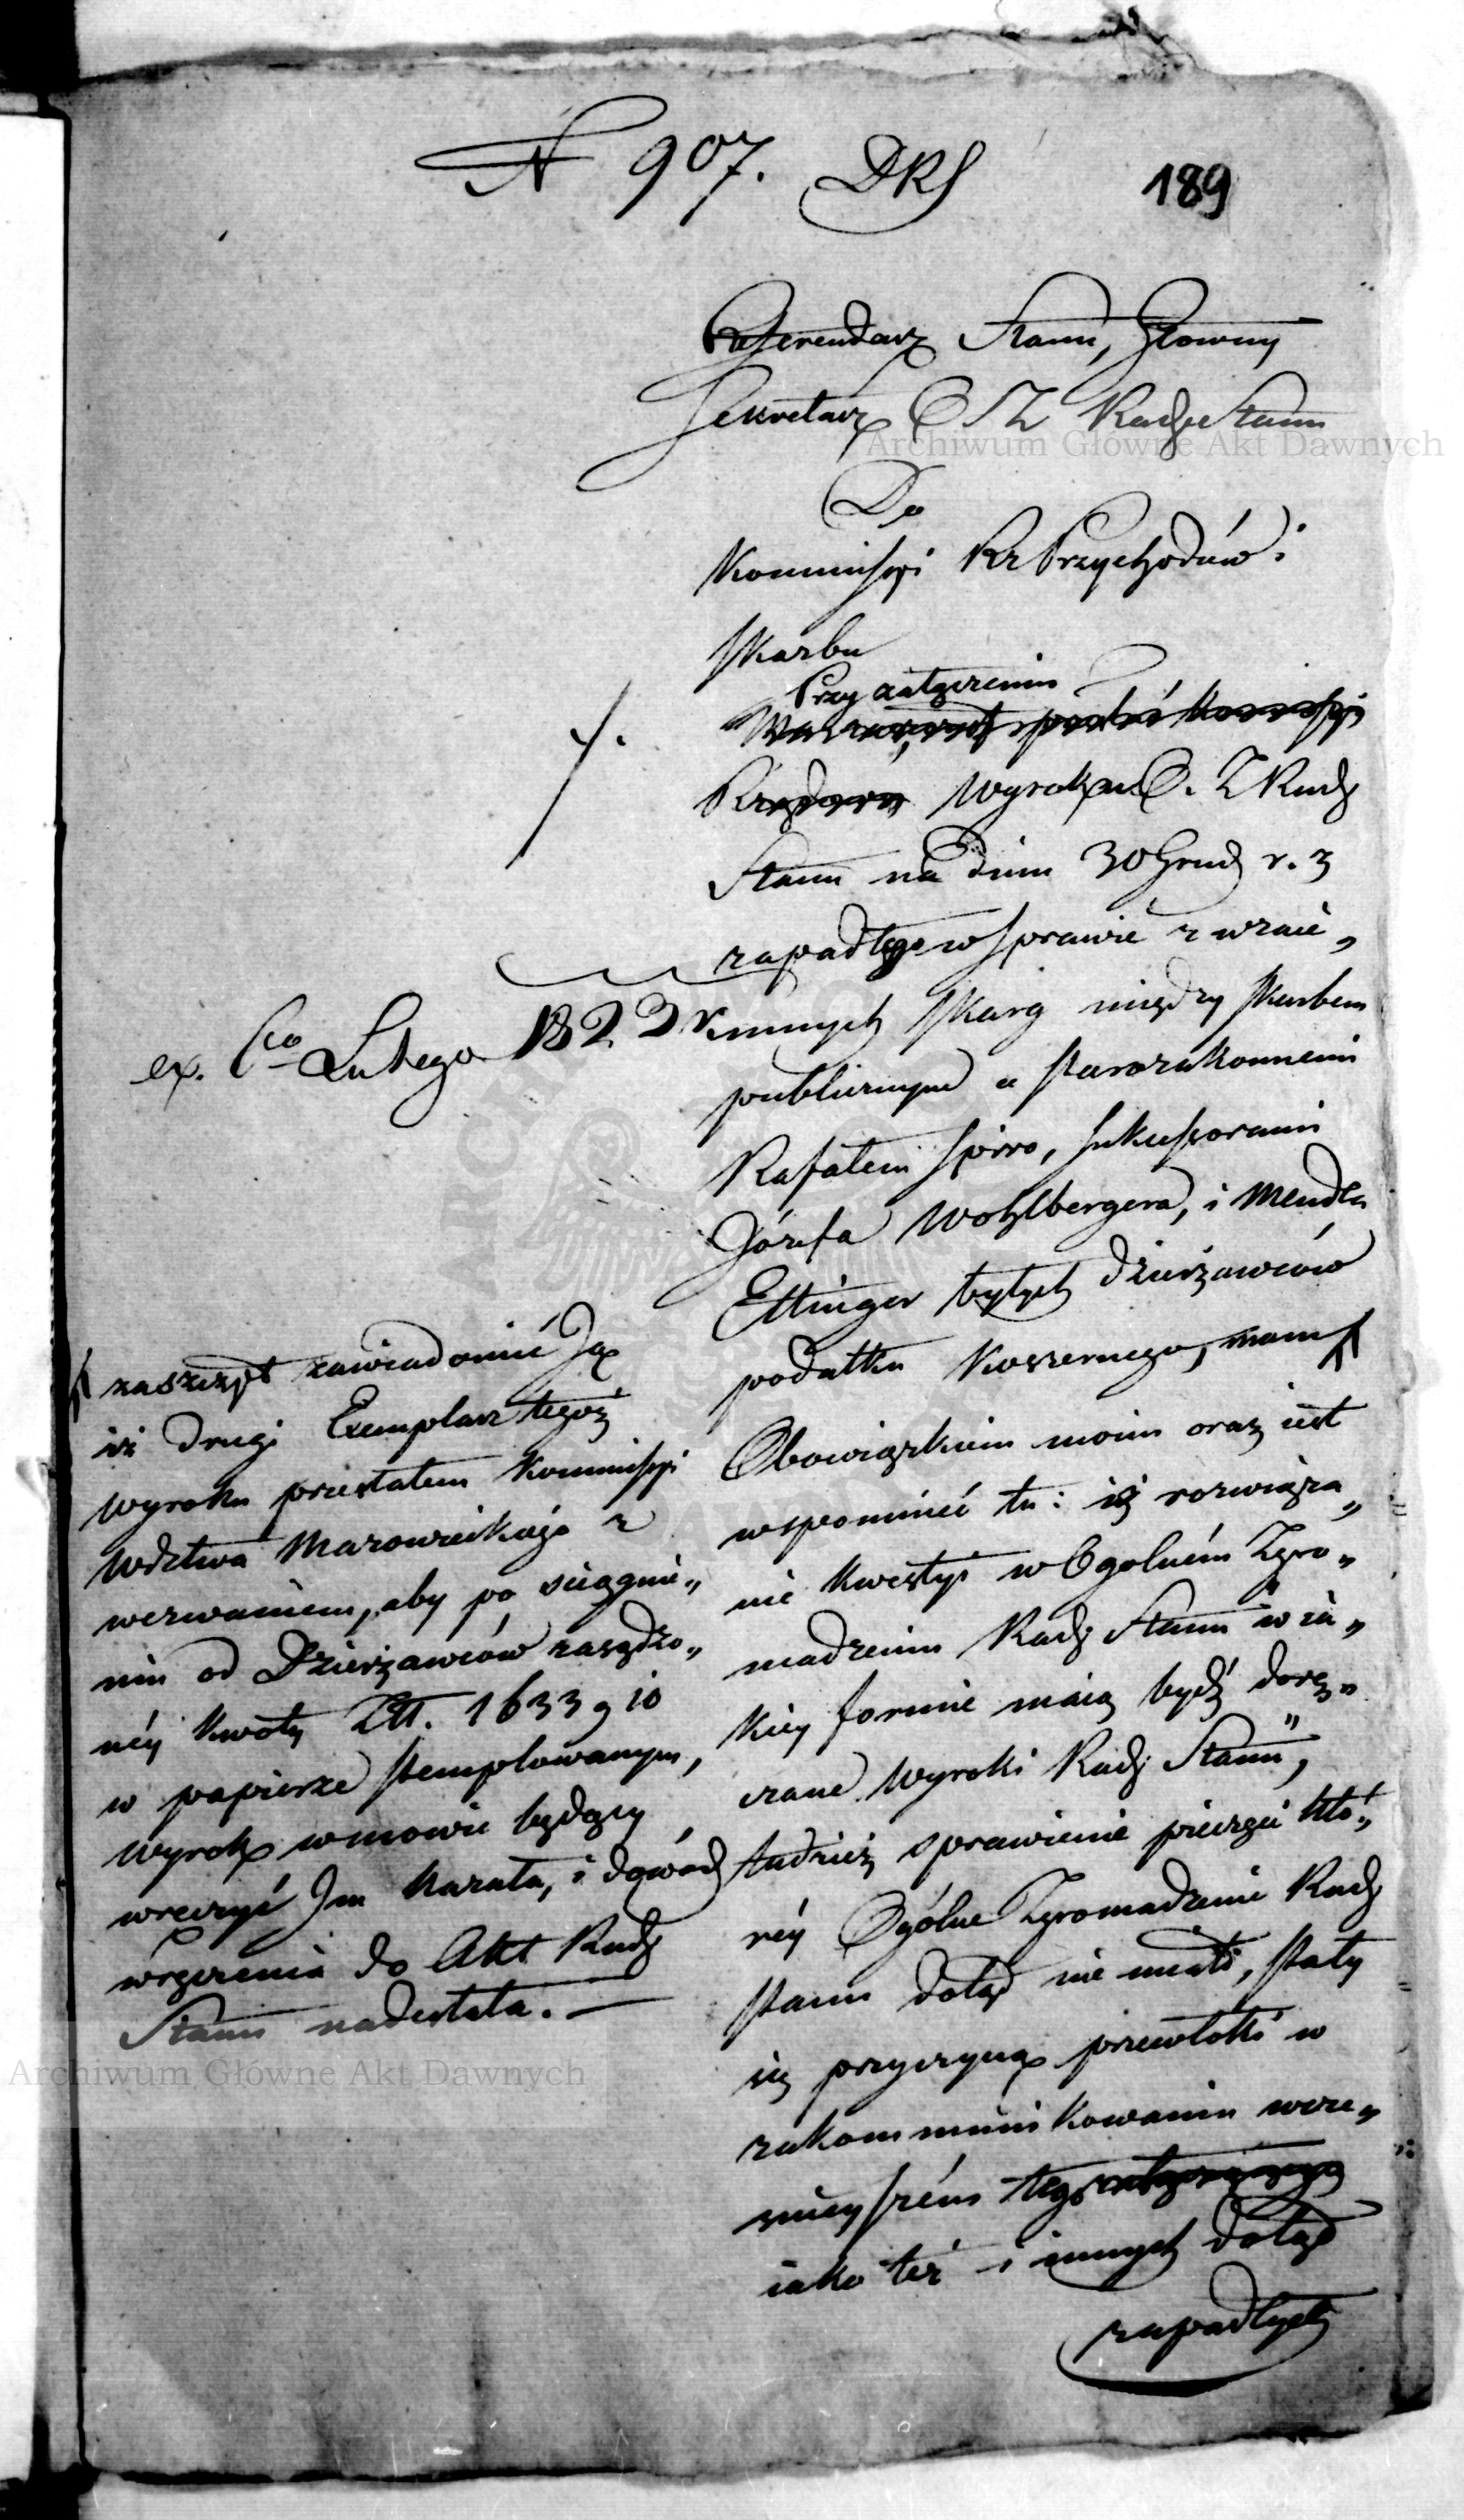 N 907. DRS
189
Referendarz Stanu, Głowny
Sekretarz O S Z Rady Stanu
Archiwum Główne Akt Dawnych
Do
Kommissyi Rz Przychodów i
Skarbu
Przy załączeniu
Kommissyi
Rządowey Wyroku O. Z Rady
Stanu na dniu 30 Grud r. z
zapadłego w sprawie z wzaie„
ex. 6o Lutego 1823
mnych skarg między Skarbem
publicznym a starozakonnemi
Rafałem Spiro, Sukcessorami
Józefa Wohlbergera, i Mendla
Ettinger byłych dzierżawców
podatku koszernego, mam
Obowiązkiem moim oraz iest
wspomnieć tu: iż rozwiąza„
nie kwestyi w Ogolném Zgro„
madzeniu Rady Stanu "w ia„
kiey formie maią bydź dorę„
czane Wyroki Rady Stanu",
tudzież sprawienie pieczęci któ„
réy Ogólne Zgromadzenie Rady
Stanu dotąd nie miało, stały
się przyczyną przewłoki w
zakommunikowaniu wcze„
śnieyszém
iako też i innych dotąd
zapadłych
zaszczyt zawiadomić Ją
iż drugi Exemplarz tegoż
Wyroku przesłałem Kommissyi
Wdztwa Mazowieckiego z
wezwaniem, aby po ściągnie„
niu od Dzierżawców zasądzo„
néy kwoty Złt. 1633 g 10
w papierze stemplowanym,
Wyrok w mowie będący
wręczyć Im kazała, i dowód
wręczenia do Akt Rady
Stanu nadesłała. —
Archiwum Główne Akt Dawnych